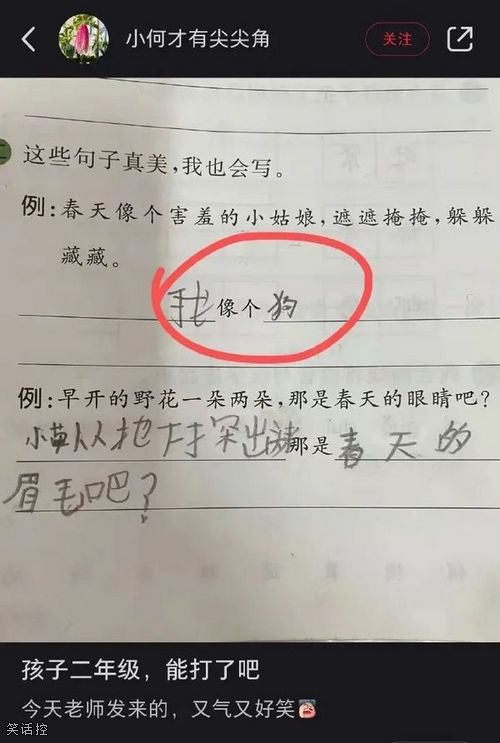 小何才有尖尖角
关注
二
这些句子真美,我也会写。
例:春天像个害羞的小姑娘,遮遮掩掩,躲躲
藏藏。
像个 狗
例:早开的野花一朵两朵,那是春天的眼睛吧?
小草从地下探出 那是 春天的
眉毛吧?
孩子二年级,能打了吧
今天老师发来的,又气又好笑
笑话控